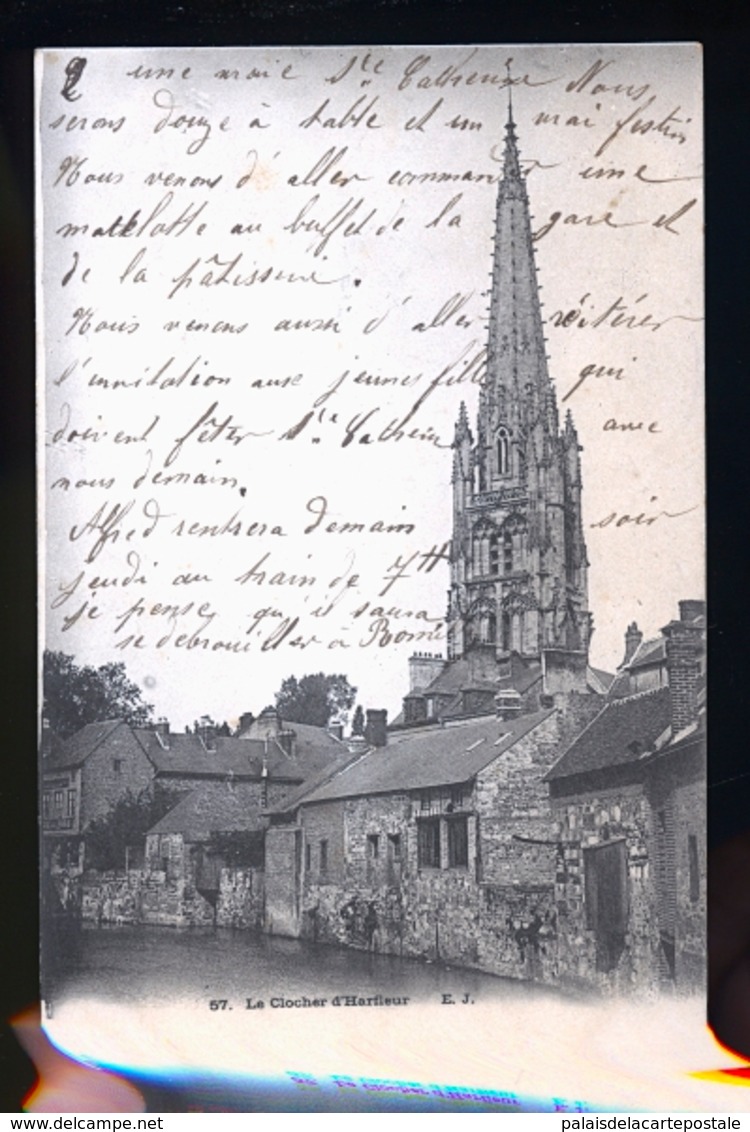 une vraie Ste Catherine Nous
serons douze à table et un vrai festin
Nous venons d'aller commander une
matelotte au buffet de la gare et
de la pâtisserie.
Nous venons aussi d'aller réitérer
l'invitation aux jeunes filles qui
doivent fêter Ste Catherine avec
nous demain.
Alfred rentrera demain soir
jeudi au train de 7H
je pense qu'il saura
se débrouiller à
57. Le Clocher d'Harfleur E. J.
palaisdelacartepostale